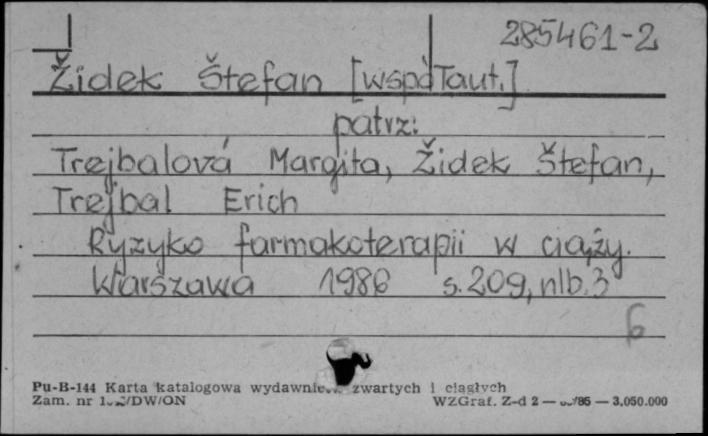 285461-2
Židek Štefan [współaut.]
patrz:
Trejbalová Margita, Židek Štefan,
Trejbal Erich
Ryzyko farmakoterapii w ciąży.
Warszawa 1986 s. 209, nlb. 3
6
Pu-B-144 Karta katalogowa zwartych i ciągłych
Zam. nr WZGraf. Z-d 2 — 3.050.000